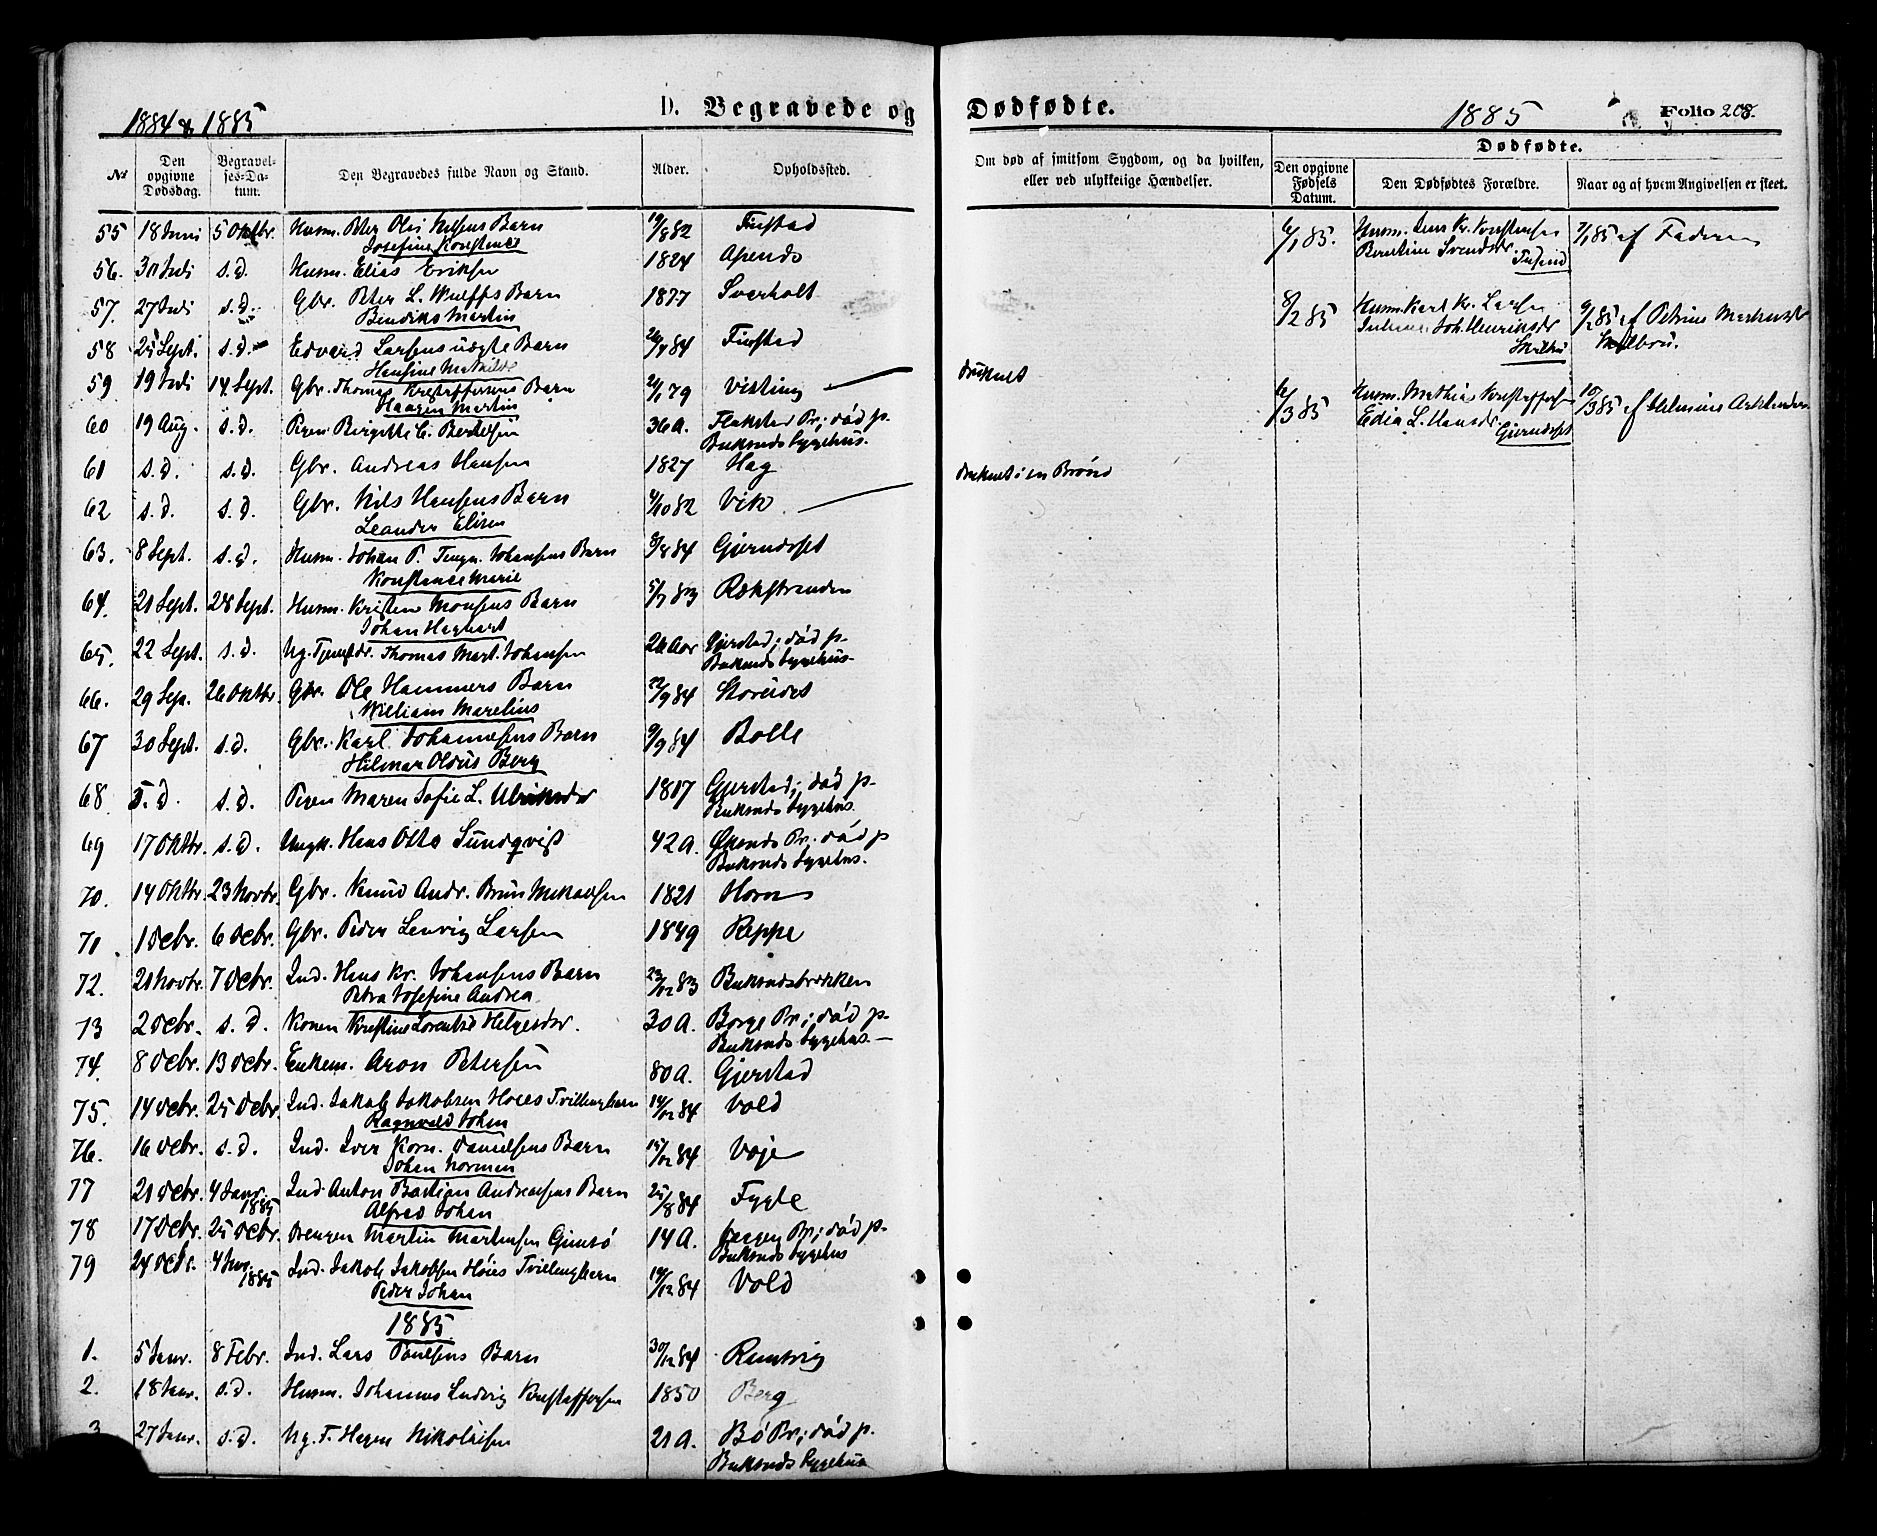 1884 & 1885
D. Begravede og
No
Den opgivne Dødsdag.
Begravelses-Datum.
Den Begravedes fulde Navn og Stand.
Alder.
Opholdssted.
55 18 Juni 5 Oktbr. Husm. Peter Olai Nilsens Barn 19/8 82 Finstad
Josefine Konstance
56. 30 Juli s.d. Husm. Elias Eriksen 1824 Apenæs
57. 27 Juli s.d. Gbr. Peter L. Wulffs Barn 1877 Sverholt
Bendiks Martin
58 25 Sept. s.d. Edvard Larsens uægte Barn /84 Finstad
Hansine Mathilde
59 19 Juli 14 Sept. Gbr. Thomas Kristoffersens Barn /1 79 Visting
Haagen Martin
60 19 Aug. s.d. Pigen Birgitte C. Bertelsen 36 A. Flakstad Pr; død p.
Buksnæs Sygehus.
61 s.d. s.d. Gbr. Andreas Hansen 1827 Hag
62 s.d. s.d. Gbr. Nils Hansens Barn 4/10 82 Vik
Leander Elisen
63. 8 Sept. s.d. Husm. Johan P. Johansens Barn 3/8 84 Gjerndeset
Konstance Marie
64. 21 Sept. 28 Sept. Husm. Kristen Monsens Barn 5/7 83 Rækstranden
Johan Hagbart
65. 22 Sept. s.d. Ug. Thomas Mart. Johansen 26 Aar Gjerstad; død p.
Buksnæs Sygehus.
66. 29 Sep. 26 Oktbr. Gbr. Ole Hammers Barn 22/9 84 Storeidet
William Marelius
67 30 Sept. s.d. Gbr. Karl Johannesens Barn 9/9 84 Bolle
Hilmar Oldus Berg
68 s.d. s.d. Pigen Maren Sofie L. Ulriksdr 1817 Gjerstad; død p.
Buksnæs Sygehus.
69 17 Oktbr. s.d. Ungk. Hans Otto Sundqvist 42 A. Øksnæs Pr; død p
Buksnæs Sygehus.
70. 14 Oktbr 23 Novbr. Gbr. Knud Andr. Bruu Mikaelsen 1821 Horn
71 1 Decbr. 6 Decbr. Gbr. Peder Lenvig Larsen 1849 Reppe
72. 21 Novbr. 7 Decbr. Ind. Hans Kr. Johansens Barn 23/12 83 Buksnæsbrækken
Petra Josefine Andrea
73 2 Decbr. s.d. Konen Kristine Lorentse Helgesdtr. 30 A. Borge Pr; død p.
Buksnæs Sygehus.
74. 8 Decbr. 13 Decbr. Enkem. Aron Petersen 80 A. Gjerstad
75. 14 Decbr. 25 Decbr. Ind. Jakob Jakobsen Høies Tvillingbarn 14/12 84 Vold
Ragnvald Johan
76. 16 Decbr. s.d. Ind. Iver Korn. Danielsens Barn 15/12 84 Voje
Johan Norman
77 21 Decbr. 4 Janr. 1885 Ind. Anton Bastian Andreasens Barn 25/8 84 Fygle
Alfred Johan
78 17 Decbr. 25 Decbr. Drengen Martin Martinsen Gimsø 14 A. Pr; død p.
Buksnæs Sygehus
79 24 Decbr. 4 Janr. 1885 Ind. Jakob Jakobsen Høies Tvillingbarn 14/12 84 Vold
Peder Johan
1885
1. 5 Janr. 8 Febr. Ind. Lars Paulsens Barn 30/12 84 Ramsvig
2. 18 Janr. s.d. Husm. Johannes Ludvig Kristoffersen 1850 Berg
3 27 Janr. s.d. Ug. F. Hagen Nikolaisen 21 A. Bø Pr; død p.
Buksnæs Sygehus
Dødfødte.
1885
Folio 208.
Om død af smitsom Sygdom, og da hvilken, eller ved ulykkelige Hændelser.
Dødfødte.
Den opgivne Fødsels Datum.
Den Dødfødtes Forældre.
Naar og af hvem Angivelsen er skeet.
6/1 85. Husm. Jens Kr. Kristensen 7/1 85 af Faderen
Berntine Svendsdr.
8/2 85 Husm. Karl Kr. Larsen 9/2 85 af Petrine
Joh. Henriksdr
druknet
6/3 85 Husm. Mathias Kristoffersen 10/3 85 af
L. Hansdr.
Gjerndeset
druknet i en Brønd